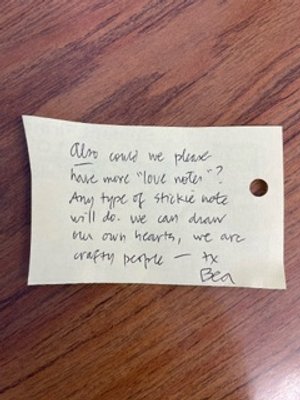 Also could we please
have more "love notes"?
Any type of stickie note
will do. we can draw
our own hearts, we are
crafty people — tx
Bea